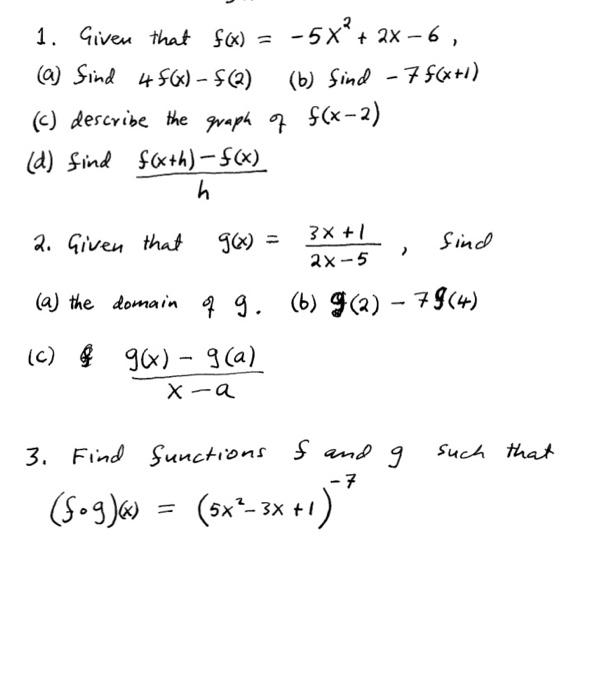 1. Given that f(x) = -5x² + 2x - 6,
(a) find 4f(x) - f(2) (b) find -7f(x+1)
(c) describe the graph of f(x-2)
(d) find f(x+h) - f(x)
h
2. Given that g(x) = 3x + 1 / 2x - 5, find
(a) the domain of g. (b) g(2) - 7g(4)
(c) g(x) - g(a)
x - a
3. Find functions f and g such that
(f∘g)(x) = (5x² - 3x + 1)⁻⁷